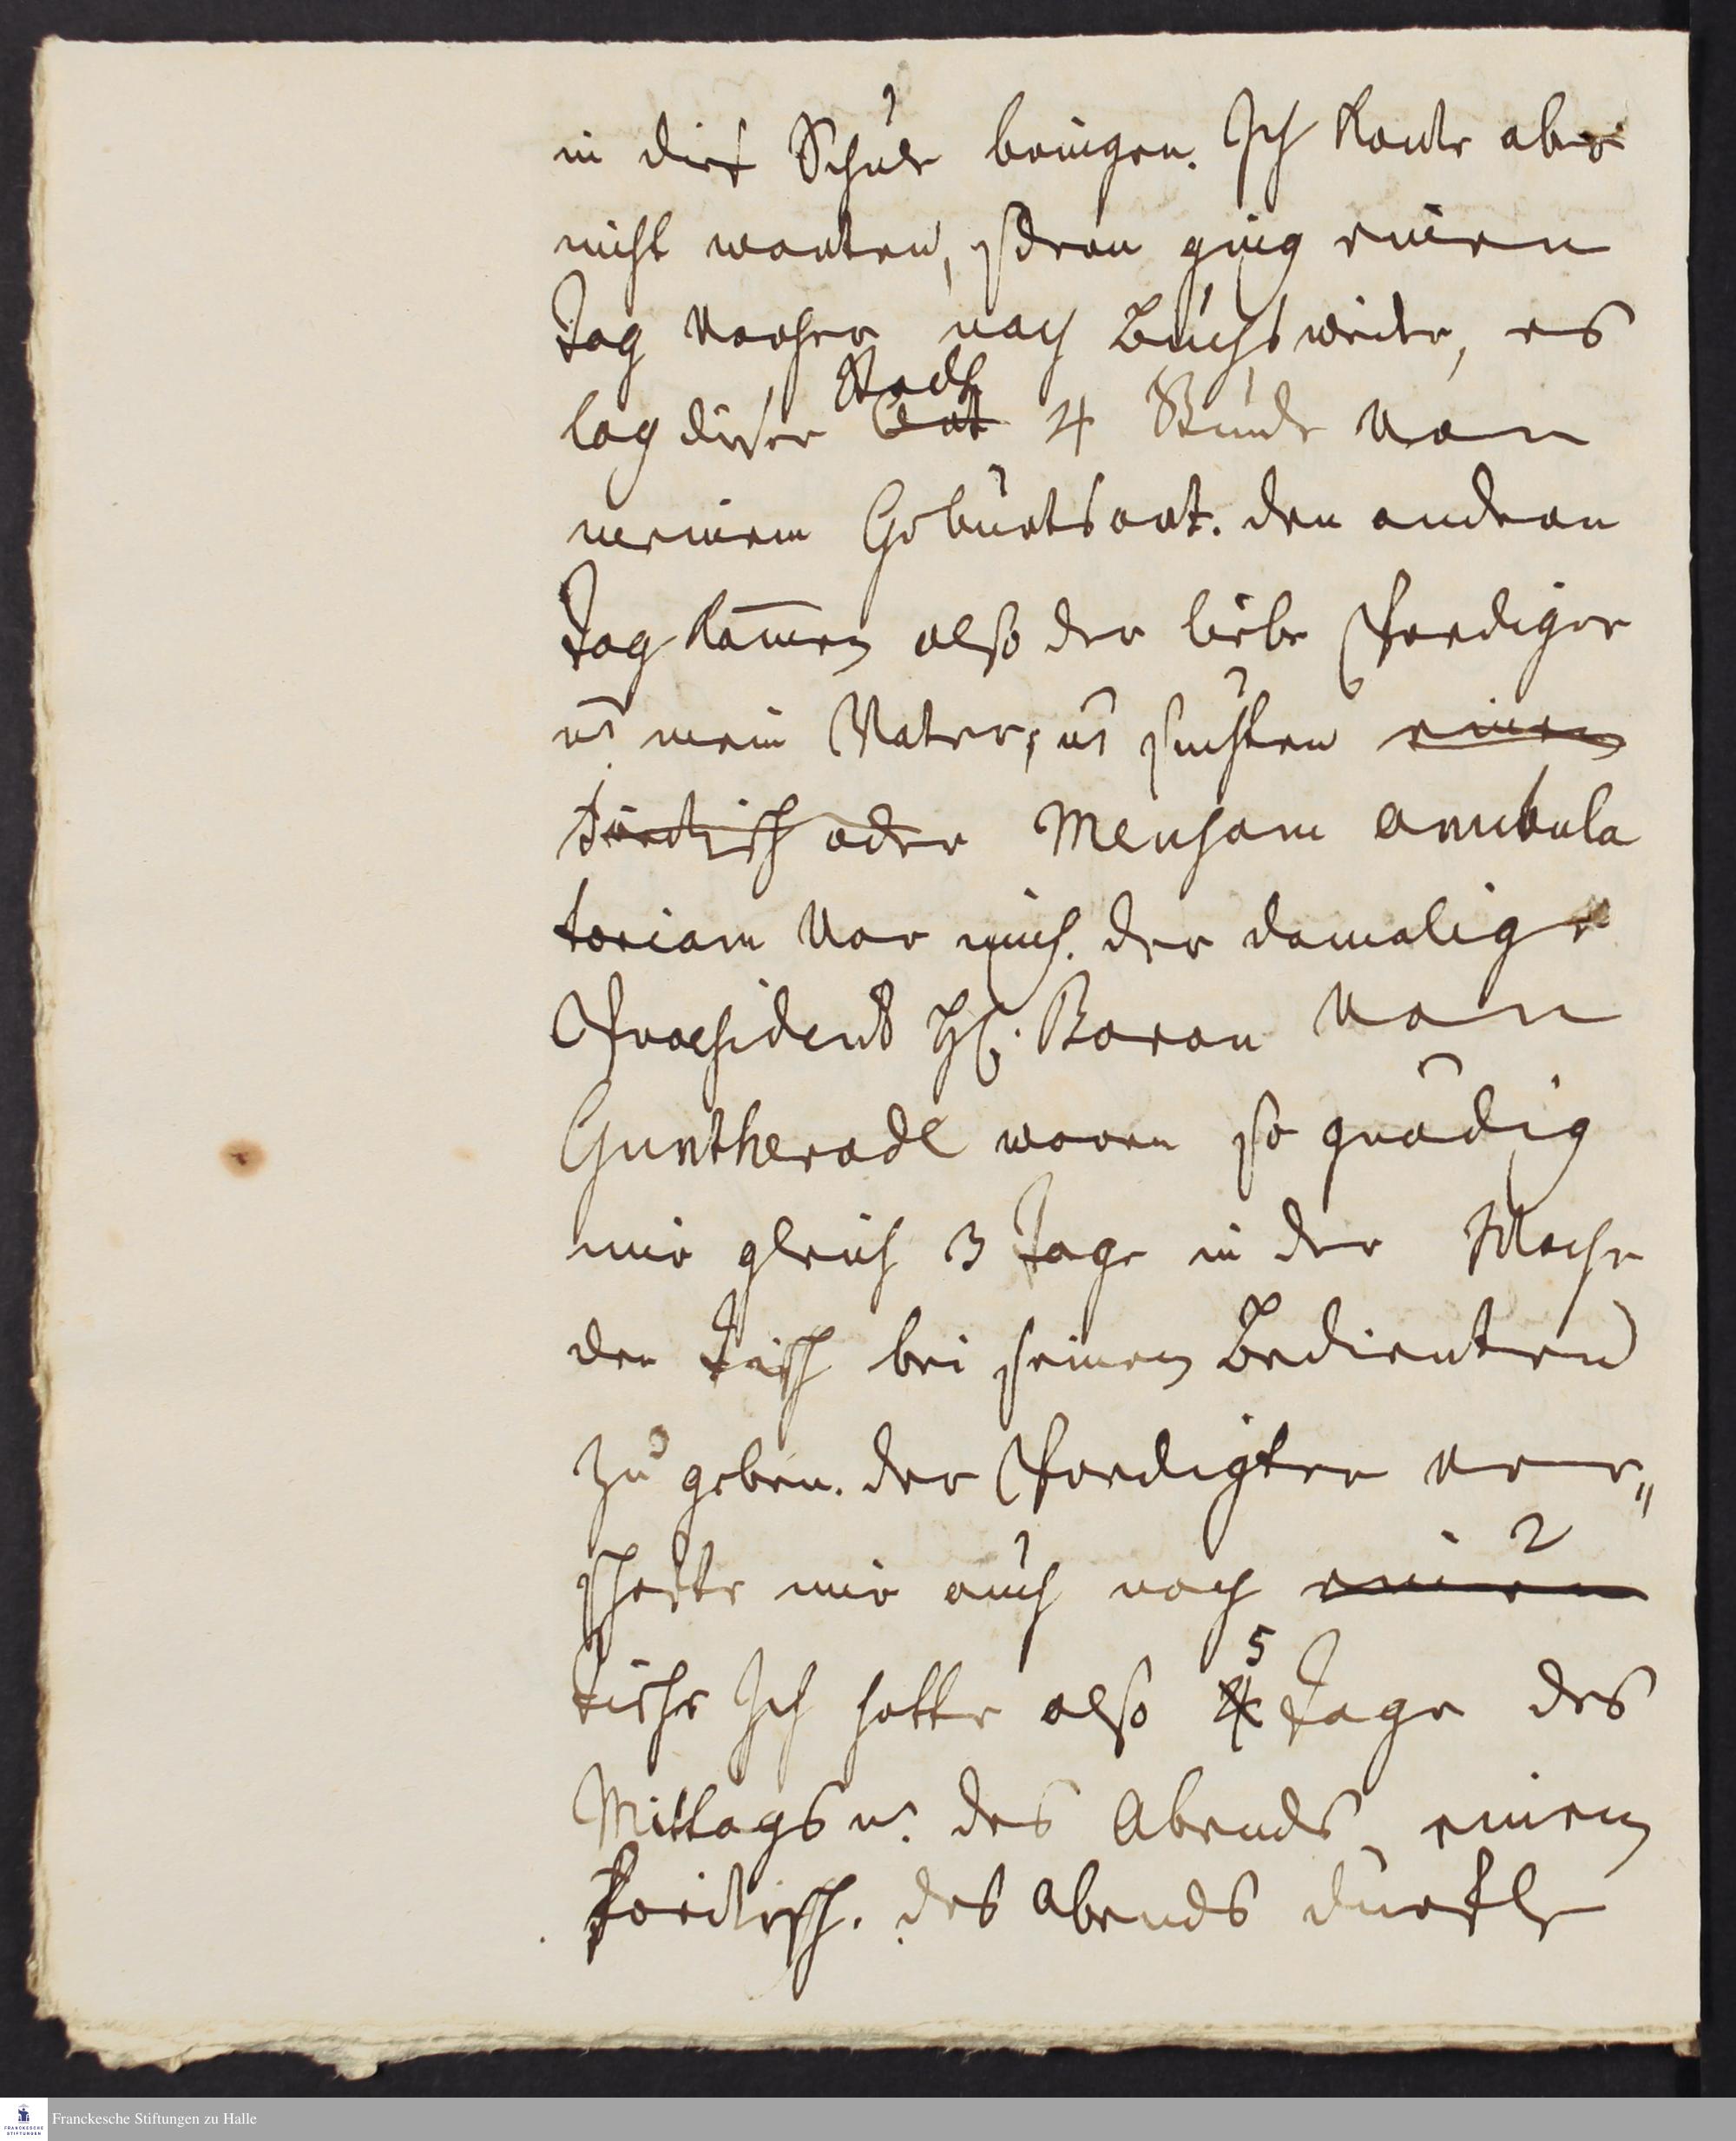 in dies Schule bringen. Ich konte aber
nicht warten, sdern ging einen
Tag vorher nach Buchsweiler, es
lag dieser Stadt Ort 4 Stunde von
meinem Geburtsort. den andern
Tag kam̅en also der liebe Prediger
u. mein Vater, u. suchten einen
oder Mensam ambula
toriam vor mich. der damalige
Praesident H. Baron von
Guntherode waren so gnädig
mir gleich 3 Tage in der Woche
den Tisch bei seinen Bedienten
zu geben. der Prediger ver„
schafte mir auch noch einen 2
Tische Ich hatte also 4 5 Tage des
Mittags u. des Abends einen
Freitisch. des Abends durfte
Franckesche Stiftungen zu Halle
FRANCKESCHE STIFTUNGEN